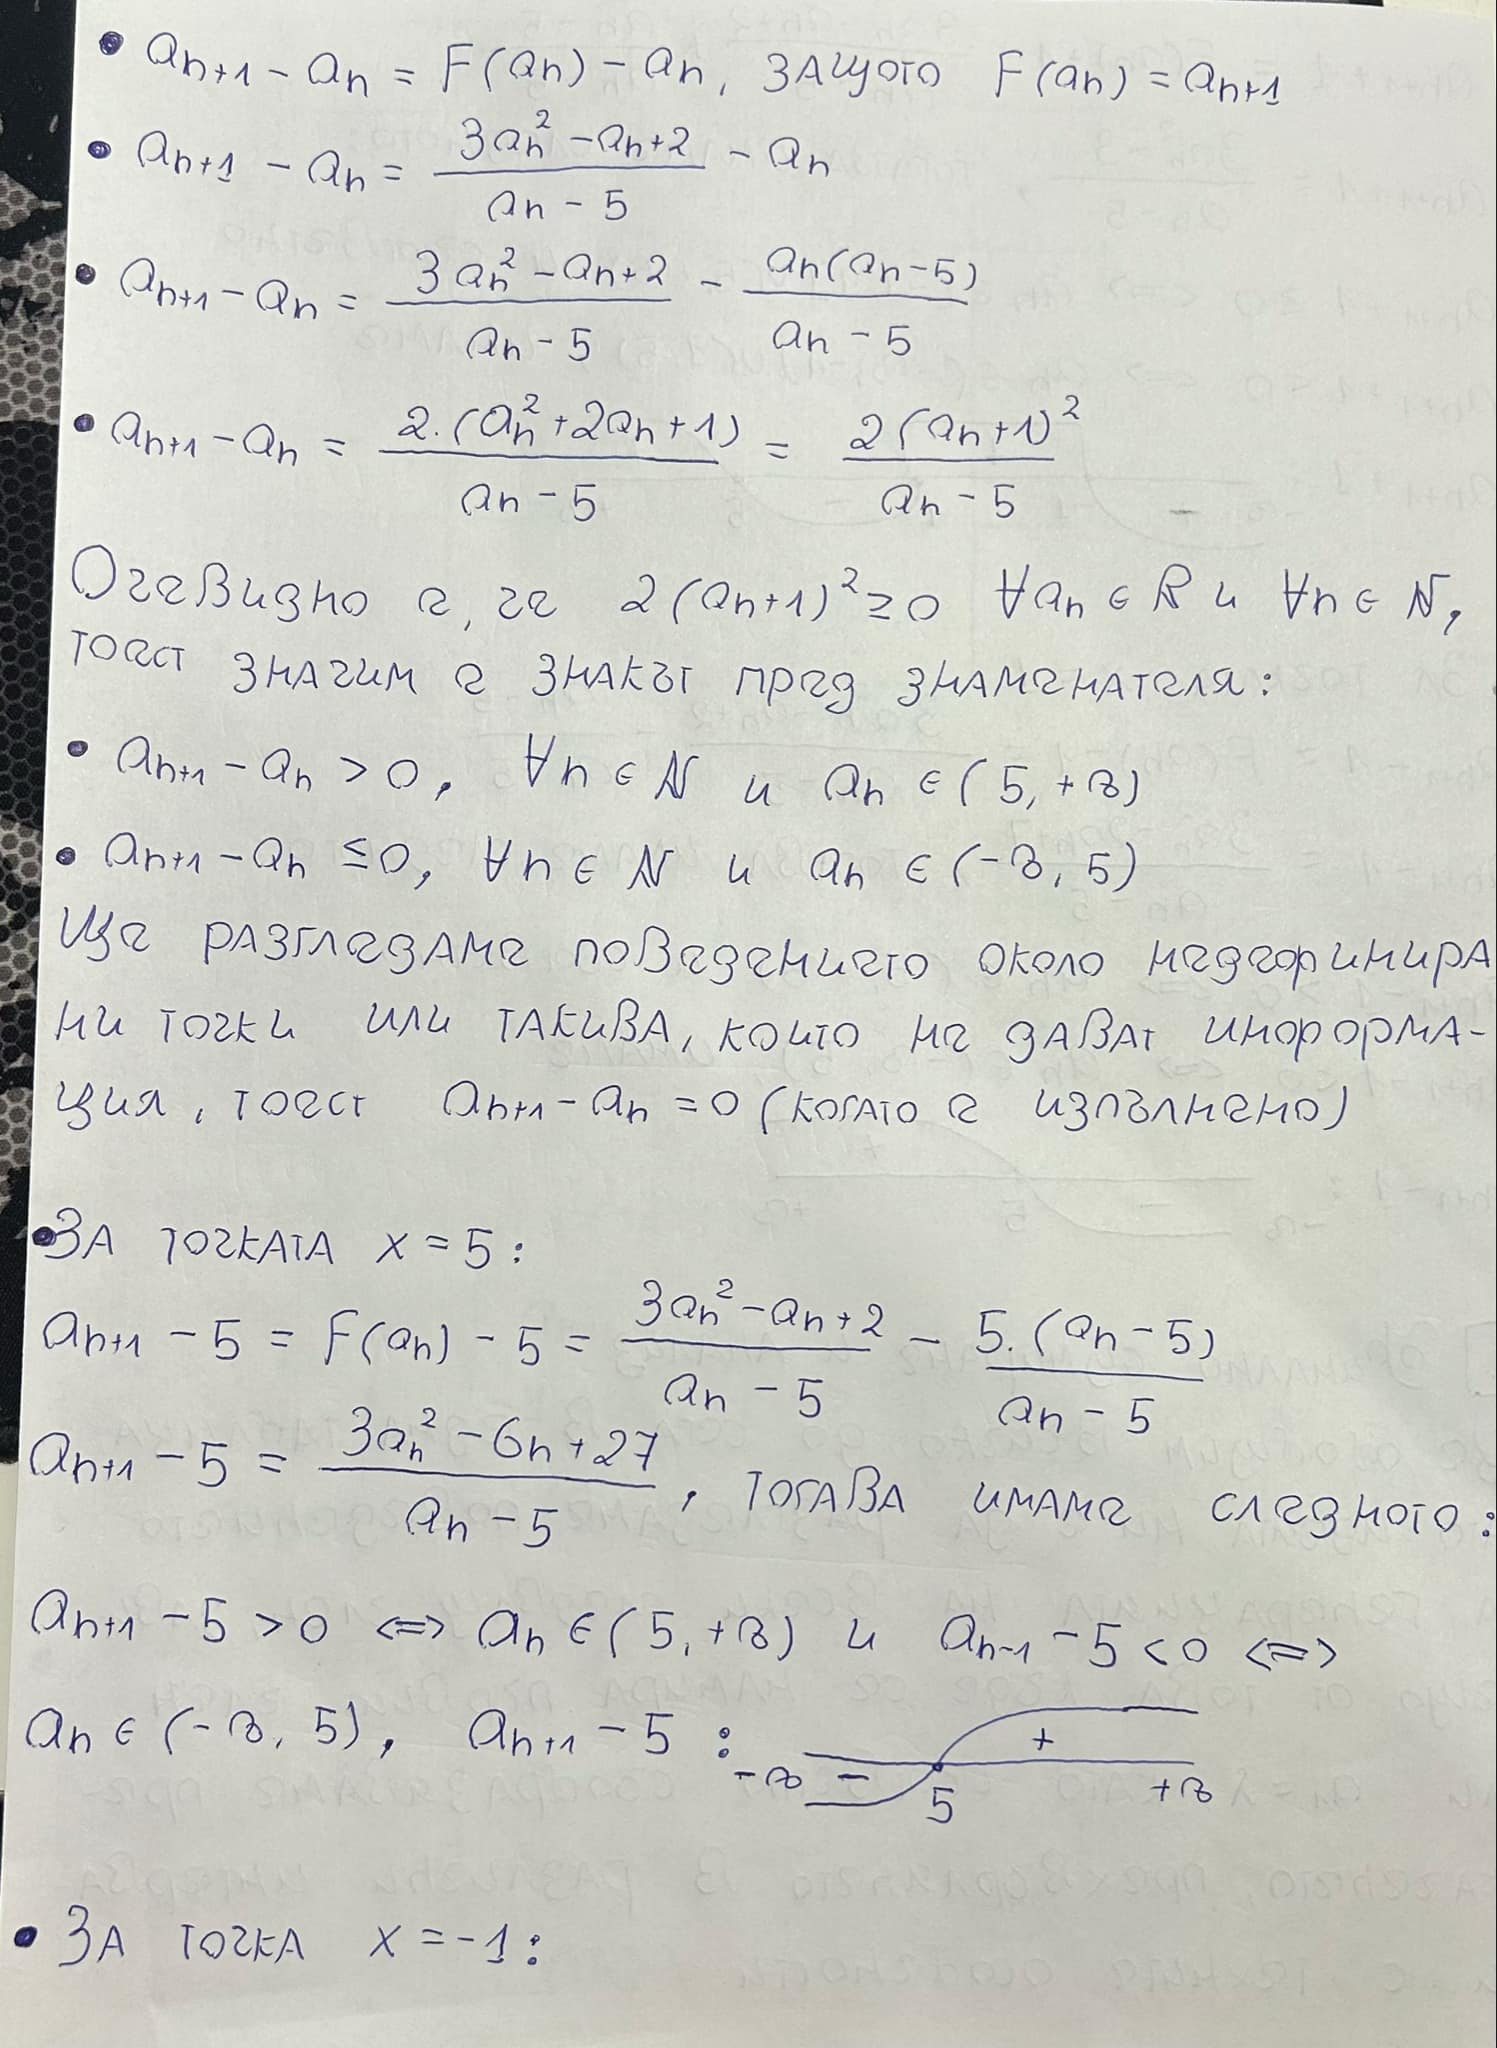 • aₙ₊₁ - aₙ = F(aₙ) - aₙ, защото F(aₙ) = aₙ₊₁
• aₙ₊₁ - aₙ = (3aₙ² - aₙ + 2)/(aₙ - 5) - aₙ
• aₙ₊₁ - aₙ = (3aₙ² - aₙ + 2)/(aₙ - 5) - aₙ(aₙ - 5)/(aₙ - 5)
• aₙ₊₁ - aₙ = 2.(aₙ² + 2aₙ + 1)/(aₙ - 5) = 2(aₙ + 1)²/(aₙ - 5)
Очевидно е, че 2(aₙ + 1)² ≥ 0 ∀aₙ ∈ ℝ и ∀n ∈ ℕ,
тоест значим е знакът пред знаменателя:
• aₙ₊₁ - aₙ > 0, ∀n ∈ ℕ и aₙ ∈ (5, +∞)
• aₙ₊₁ - aₙ ≤ 0, ∀n ∈ ℕ и aₙ ∈ (-∞, 5)
Ще разгледаме поведението около недефинира
ни точки или такива, които не дават информа-
ция, тоест aₙ₊₁ - aₙ = 0 (когато е изпълнено)
• За точката x = 5:
aₙ₊₁ - 5 = F(aₙ) - 5 = (3aₙ² - aₙ + 2)/(aₙ - 5) - 5.(aₙ - 5)/(aₙ - 5)
aₙ₊₁ - 5 = (3aₙ² - 6n + 27)/(aₙ - 5), тогава имаме следното:
aₙ₊₁ - 5 > 0 <=> aₙ ∈ (5, +∞) и aₙ₋₁ - 5 < 0 <=>
aₙ ∈ (-∞, 5), aₙ₊₁ - 5 : +
-∞ - 5 +∞
• За точка x = -1: